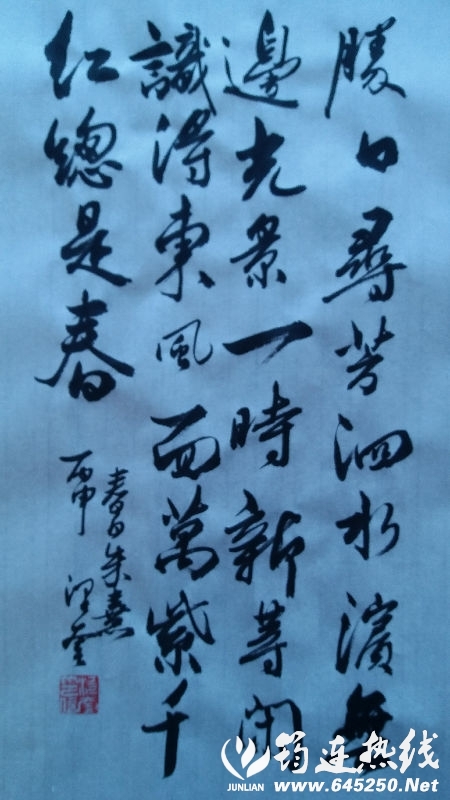 勝日尋芳泗水濱無
邊光景一時新等閒
識得東風面萬紫千
紅總是春
春日朱熹
丙申
筠连热线
JUNLIAN
www.645250.Net